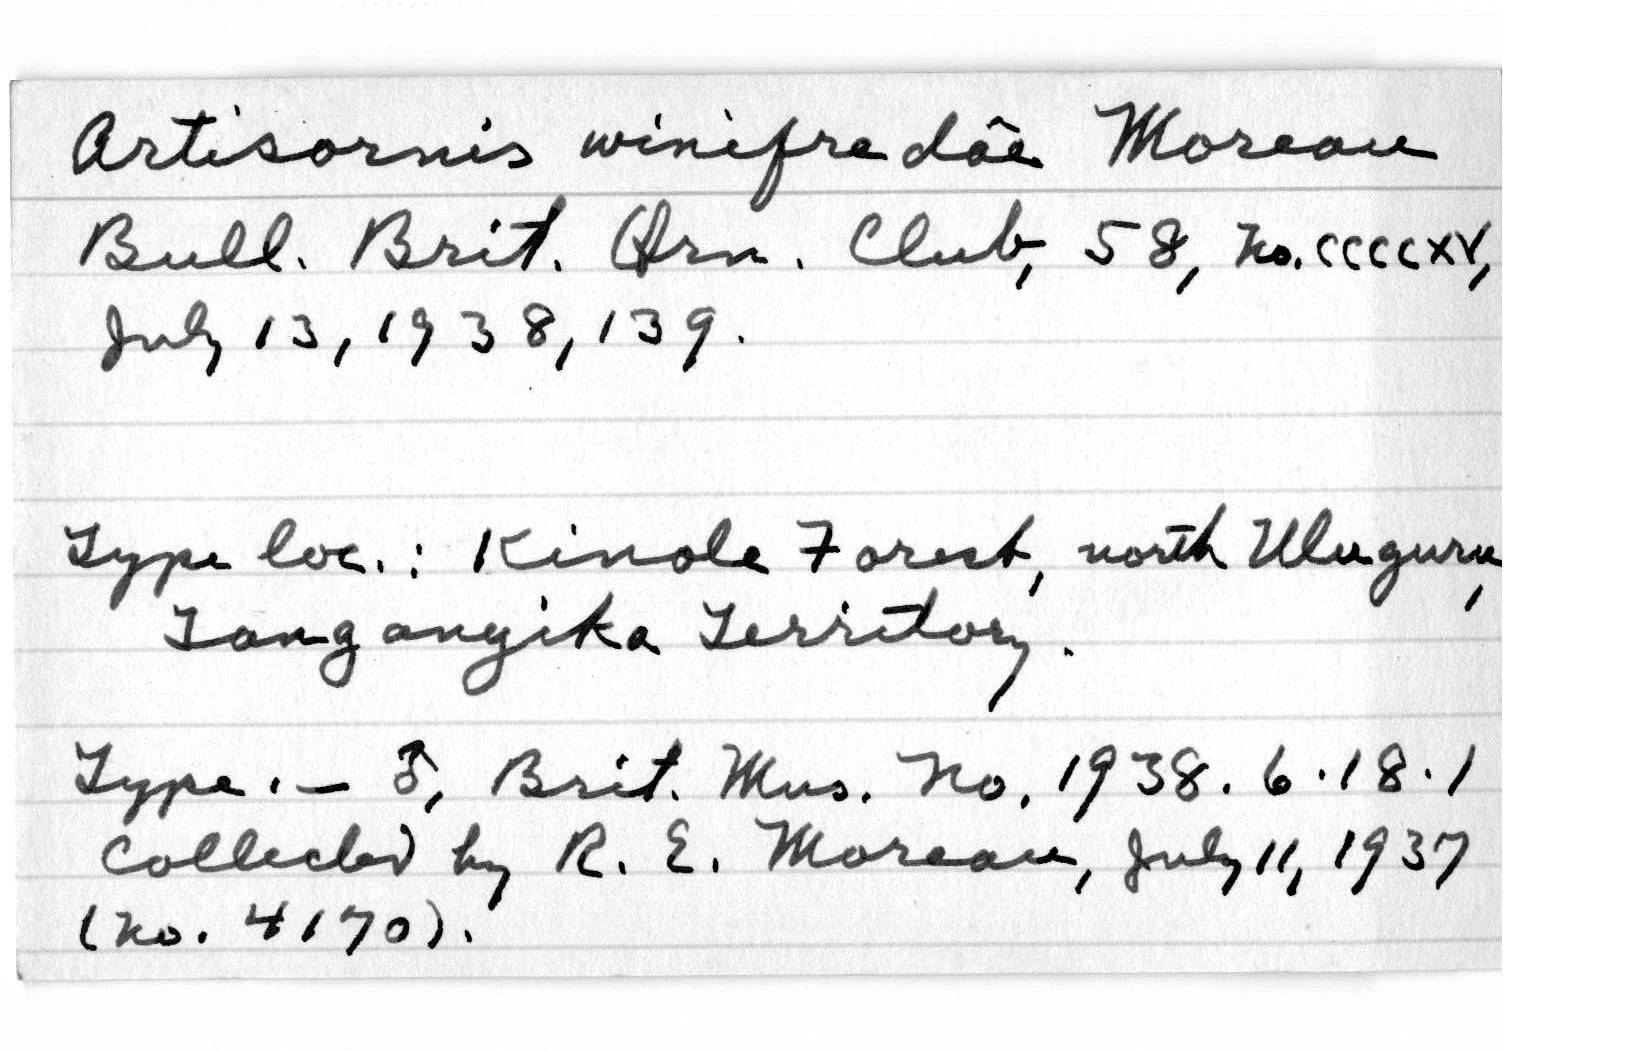 Artisornis winifredâe Moreau
Bull. Brit. Orn. Club, 58, no. CCCCXV,
July 13, 1938, 139.
Type loc.: Kinole Forest, north Uluguru,
Tanganyika Territory.
Type.— ♂, Brit. Mus. No. 1938.6.18.1
collected by R. E. Moreau, July 11, 1937
(no. 4170).